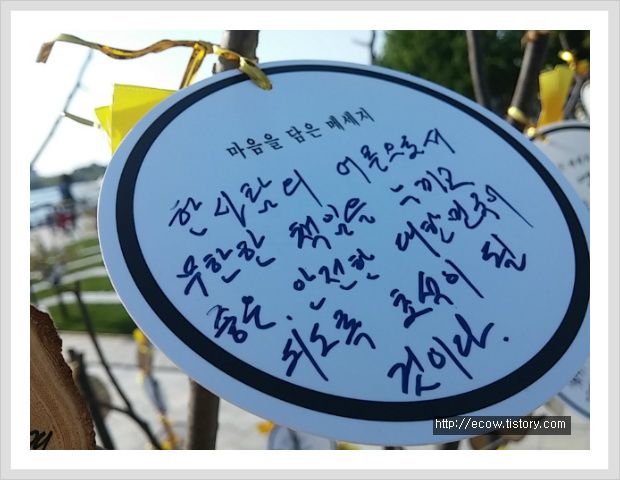 마음을 담은 메세지
한 사람의 어른으로서
무한한 책임을 느끼고
좋은, 안전한 대한민국이
되도록 초석이 될
것이다.
http://ecow.tistory.com